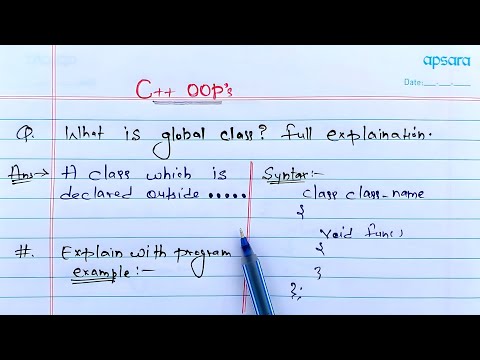 apsara
Date:___.___.___
C++ OOP's
Q. What is global class? full explaination.
Ans→ A class which is
declared outside .....
#. Explain with program
example:-
Syntax:-
class class_name
{
void func()
{
}
};